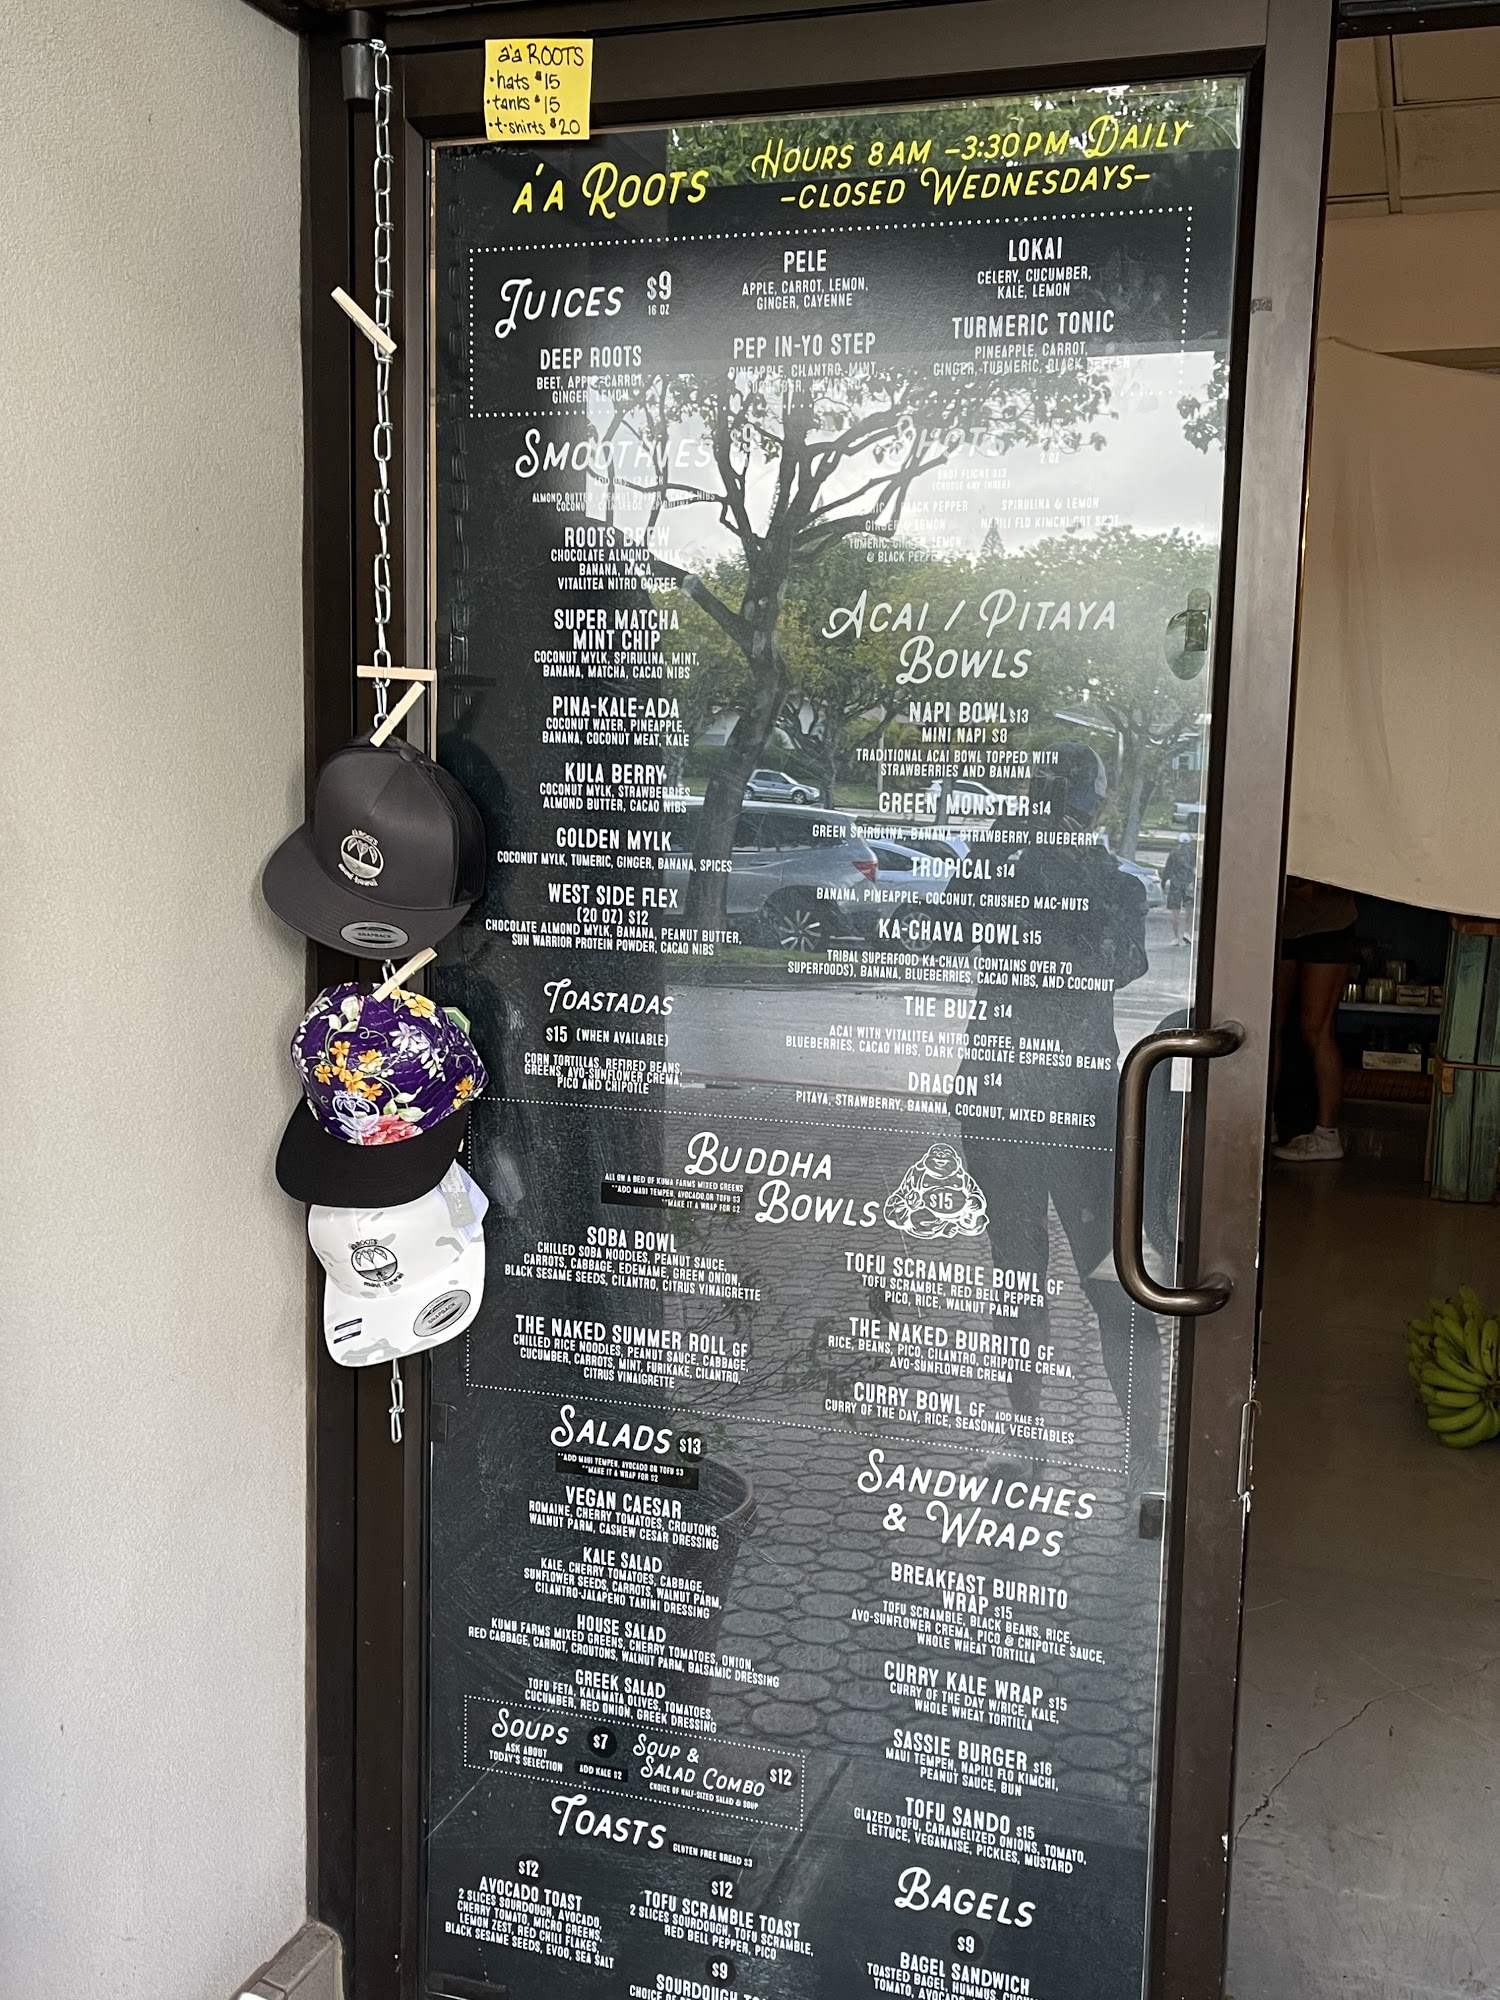 a'a ROOTS
• hats $15
• tanks $15
• t-shirts $20
A'A ROOTS
HOURS 8 AM -3:30PM DAILY
-CLOSED WEDNESDAYS-
JUICES $9
16 OZ
PELE
APPLE, CARROT, LEMON,
GINGER, CAYENNE
LOKAI
CELERY, CUCUMBER,
KALE, LEMON
DEEP ROOTS
BEET, APPLE, CARROT,
GINGER, LEMON
PEP IN-YO STEP
PINEAPPLE, CILANTRO, MINT,
CUCUMBER, JALAPENO
TURMERIC TONIC
PINEAPPLE, CARROT,
GINGER, TURMERIC, BLACK PEPPER
SMOOTHIES $9
ADD ONS: $2 EACH
ALMOND BUTTER PEANUT BUTTER CACAO NIBS
COCONUT CHIA SEEDS SPIRULINA
ROOTS BREW
CHOCOLATE ALMOND MYLK,
BANANA, MACA,
VITALITEA NITRO COFFEE
SUPER MATCHA
MINT CHIP
COCONUT MYLK, SPIRULINA, MINT,
BANANA, MATCHA, CACAO NIBS
PINA-KALE-ADA
COCONUT WATER, PINEAPPLE,
BANANA, COCONUT MEAT, KALE
KULA BERRY
COCONUT MYLK, STRAWBERRIES
ALMOND BUTTER, CACAO NIBS
GOLDEN MYLK
COCONUT MYLK, TUMERIC, GINGER, BANANA, SPICES
WEST SIDE FLEX
(20 OZ) $12
CHOCOLATE ALMOND MYLK, BANANA, PEANUT BUTTER,
SUN WARRIOR PROTEIN POWDER, CACAO NIBS
TOASTADAS
$15 (WHEN AVAILABLE)
CORN TORTILLAS, REFIRED BEANS,
GREENS, AVO-SUNFLOWER CREMA,
PICO AND CHIPOTLE
SHOTS
2 OZ
SHOT FLIGHT $13
(CHOOSE ANY THREE)
BLACK PEPPER
SPIRULINA & LEMON
GINGER & LEMON
NAPILI FLO KIMCHI GUT SHOT
TUMERIC, GINGER, LEMON
& BLACK PEPPER
ACAI / PITAYA
BOWLS
NAPI BOWL $13
MINI NAPI $8
TRADITIONAL ACAI BOWL TOPPED WITH
STRAWBERRIES AND BANANA
GREEN MONSTER $14
GREEN SPIRULINA, BANANA, STRAWBERRY, BLUEBERRY
TROPICAL $14
BANANA, PINEAPPLE, COCONUT, CRUSHED MAC-NUTS
KA-CHAVA BOWL $15
TRIBAL SUPERFOOD KA-CHAVA (CONTAINS OVER 70
SUPERFOODS), BANANA, BLUEBERRIES, CACAO NIBS, AND COCONUT
THE BUZZ $14
ACAI WITH VITALITEA NITRO COFFEE, BANANA,
BLUEBERRIES, CACAO NIBS, DARK CHOCOLATE ESPRESSO BEANS
DRAGON $14
PITAYA, STRAWBERRY, BANANA, COCONUT, MIXED BERRIES
BUDDHA
BOWLS $15
ALL ON A BED OF KUMA FARMS MIXED GREENS
**ADD MAUI TEMPEH, AVOCADO,OR TOFU $3
**MAKE IT A WRAP FOR $2
SOBA BOWL
CHILLED SOBA NOODLES, PEANUT SAUCE,
CARROTS, CABBAGE, EDEMAME, GREEN ONION,
BLACK SESAME SEEDS, CILANTRO, CITRUS VINAIGRETTE
THE NAKED SUMMER ROLL GF
CHILLED RICE NOODLES, PEANUT SAUCE, CABBAGE,
CUCUMBER, CARROTS, MINT, FURIKAKE, CILANTRO,
CITRUS VINAIGRETTE
TOFU SCRAMBLE BOWL GF
TOFU SCRAMBLE, RED BELL PEPPER
PICO, RICE, WALNUT PARM
THE NAKED BURRITO GF
RICE, BEANS, PICO, CILANTRO, CHIPOTLE CREMA,
AVO-SUNFLOWER CREMA
CURRY BOWL GF ADD KALE $2
CURRY OF THE DAY, RICE, SEASONAL VEGETABLES
SALADS $13
**ADD MAUI TEMPEH, AVOCADO OR TOFU $3
**MAKE IT A WRAP FOR $2
VEGAN CAESAR
ROMAINE, CHERRY TOMATOES, CROUTONS,
WALNUT PARM, CASHEW CESAR DRESSING
KALE SALAD
KALE, CHERRY TOMATOES, CABBAGE,
SUNFLOWER SEEDS, CARROTS, WALNUT PARM,
CILANTRO-JALAPENO TAHINI DRESSING
HOUSE SALAD
KUMU FARMS MIXED GREENS, CHERRY TOMATOES, ONION,
RED CABBAGE, CARROT, CROUTONS, WALNUT PARM, BALSAMIC DRESSING
GREEK SALAD
TOFU FETA, KALAMATA OLIVES, TOMATOES,
CUCUMBER, RED ONION, GREEK DRESSING
SOUPS $7
ASK ABOUT
TODAY'S SELECTION
ADD KALE $2
SOUP &
SALAD COMBO $12
CHOICE OF HALF-SIZED SALAD & SOUP
TOASTS GLUTEN FREE BREAD $3
$12
AVOCADO TOAST
2 SLICES SOURDOUGH, AVOCADO,
CHERRY TOMATO, MICRO GREENS,
LEMON ZEST, RED CHILI FLAKES,
BLACK SESAME SEEDS, EVOO, SEA SALT
$12
TOFU SCRAMBLE TOAST
2 SLICES SOURDOUGH, TOFU SCRAMBLE,
RED BELL PEPPER, PICO
$9
SOURDOUGH
SANDWICHES
& WRAPS
BREAKFAST BURRITO
WRAP $15
TOFU SCRAMBLE, BLACK BEANS, RICE,
AVO-SUNFLOWER CREMA, PICO & CHIPOTLE SAUCE,
WHOLE WHEAT TORTILLA
CURRY KALE WRAP $15
CURRY OF THE DAY W/RICE, KALE,
WHOLE WHEAT TORTILLA
SASSIE BURGER $16
MAUI TEMPEH, NAPILI FLO KIMCHI,
PEANUT SAUCE, BUN
TOFU SANDO $15
GLAZED TOFU, CARAMELIZED ONIONS, TOMATO,
LETTUCE, VEGANAISE, PICKLES, MUSTARD
BAGELS
$9
BAGEL SANDWICH
TOASTED BAGEL, HUMMUS,
TOMATO,
A'A ROOTS
maui • hawaii
SNAPBACK
A'A ROOTS
maui • hawaii
SNAPBACK